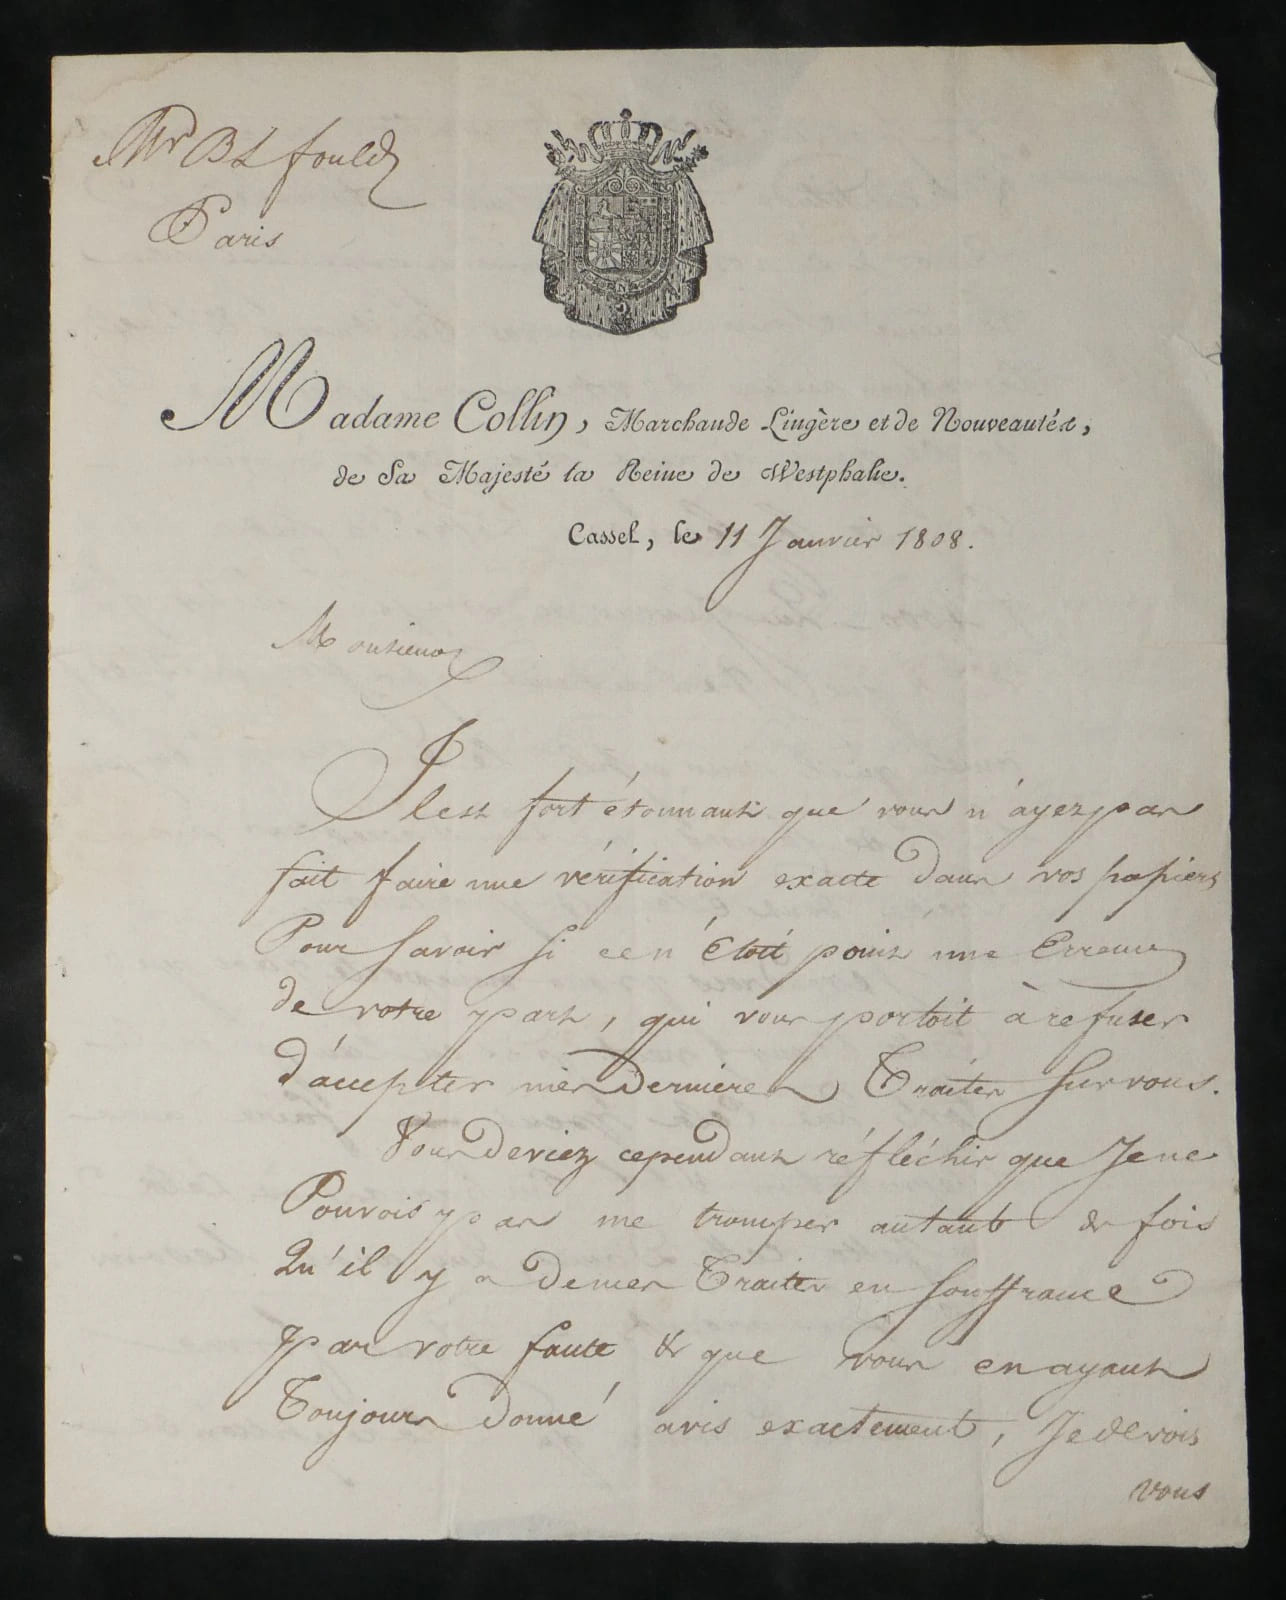 Mr B L fould
Paris
Madame Collin, Marchande Lingère et de Nouveautés,
de Sa Majesté la Reine de Westphalie.
Cassel, le 11 Janvier 1808.
Monsieur
Il est fort étonnant que vous n'ayez pas
fait faire une vérification exacte dans vos papiers
Pour savoir si ce n'étoit point une Erreur
de votre part, qui vous portoit à refuser
d'accepter mes dernieres Traites sur vous.
Vous deviez cependant réfléchir que Je ne
Pouvois pas me tromper autant de fois
Qu'il y a de mes Traites en souffrance
par votre faute & que vous en ayant
Toujours donné avis exactement, Je devois
vous